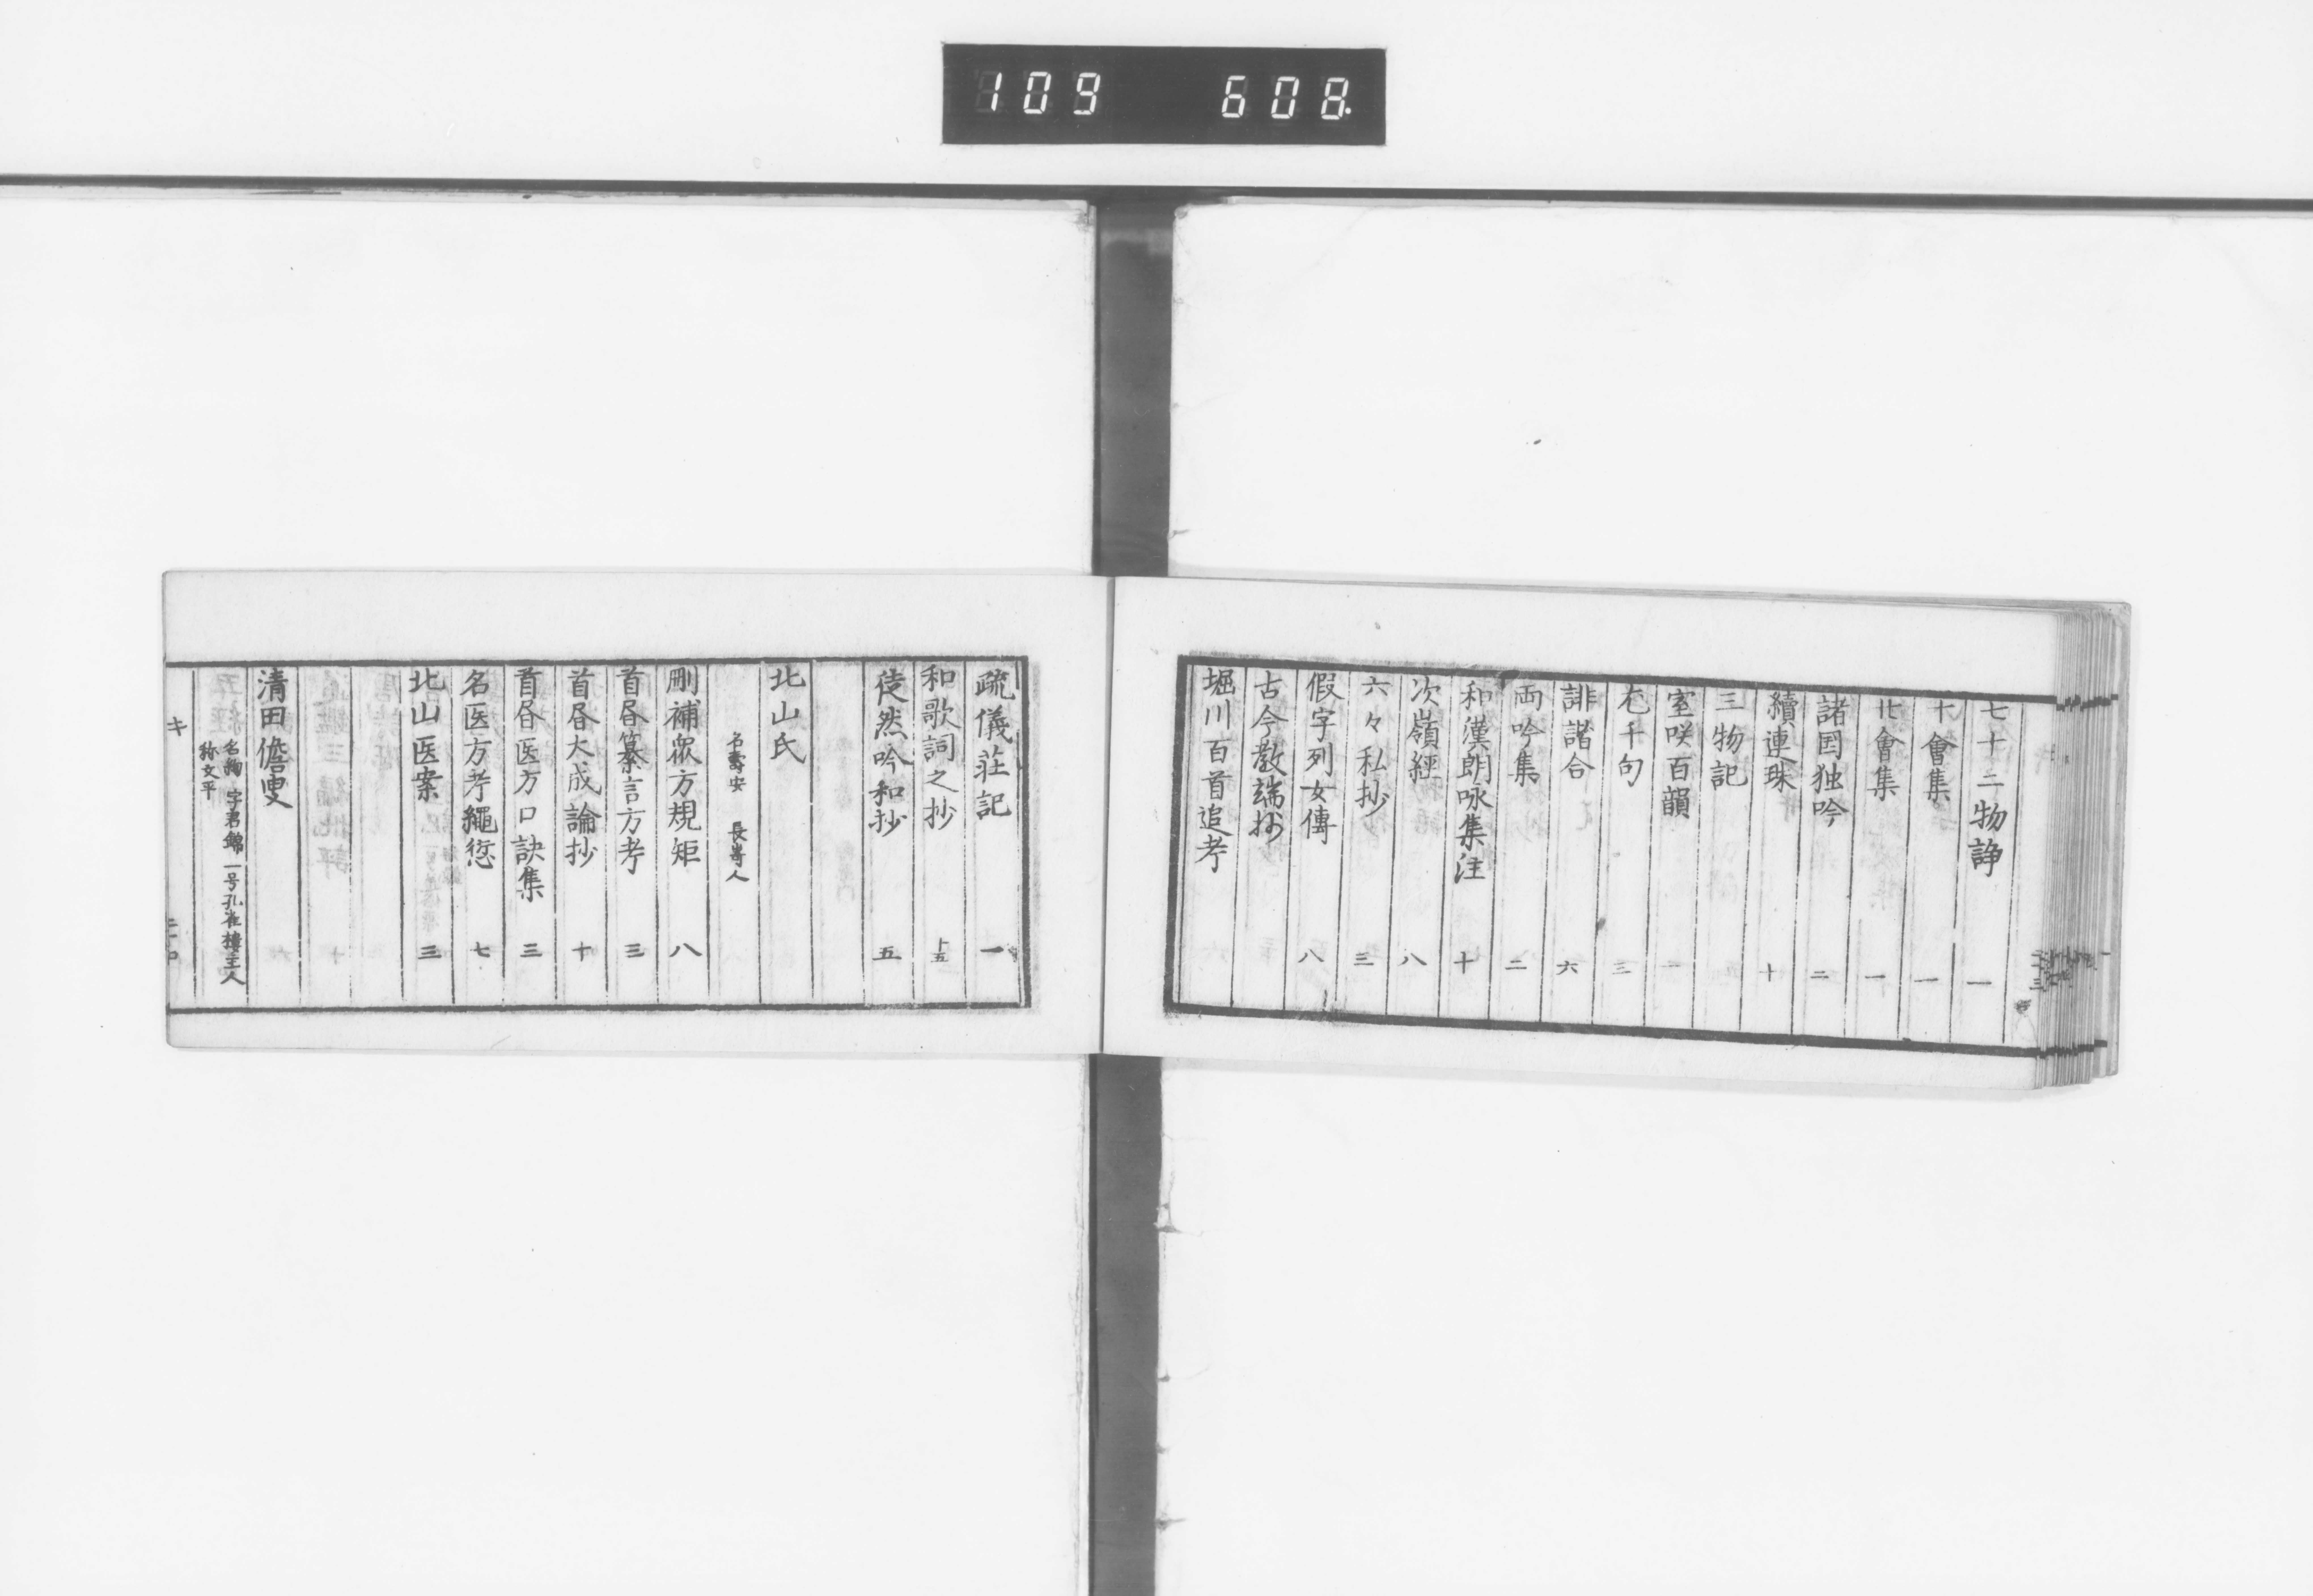 109 608
七十二物諍 一
十會集 一
北會集 一
諸国独吟 二
續連珠 十
三物記
室咲百韻 一
千句 三
誹諧合 六
両吟集 二
和漢朗咏集注 十
次嶺經 八
六々私抄 三
假字列女傳 八
古今敎端抄
堀川百首追考
疏儀荘記 一
和歌詞之抄 五
徒然吟和抄 五
北山氏
名壽安 長嵜人
刪補衆方規矩 八
首書纂言方考 三
首書大成論抄 十
首書医方口訣集 三
名医方考繩愆 七
北山医案 三
清田儋叟
名絢 字君錦 一号孔雀樓主人
称文平
キ